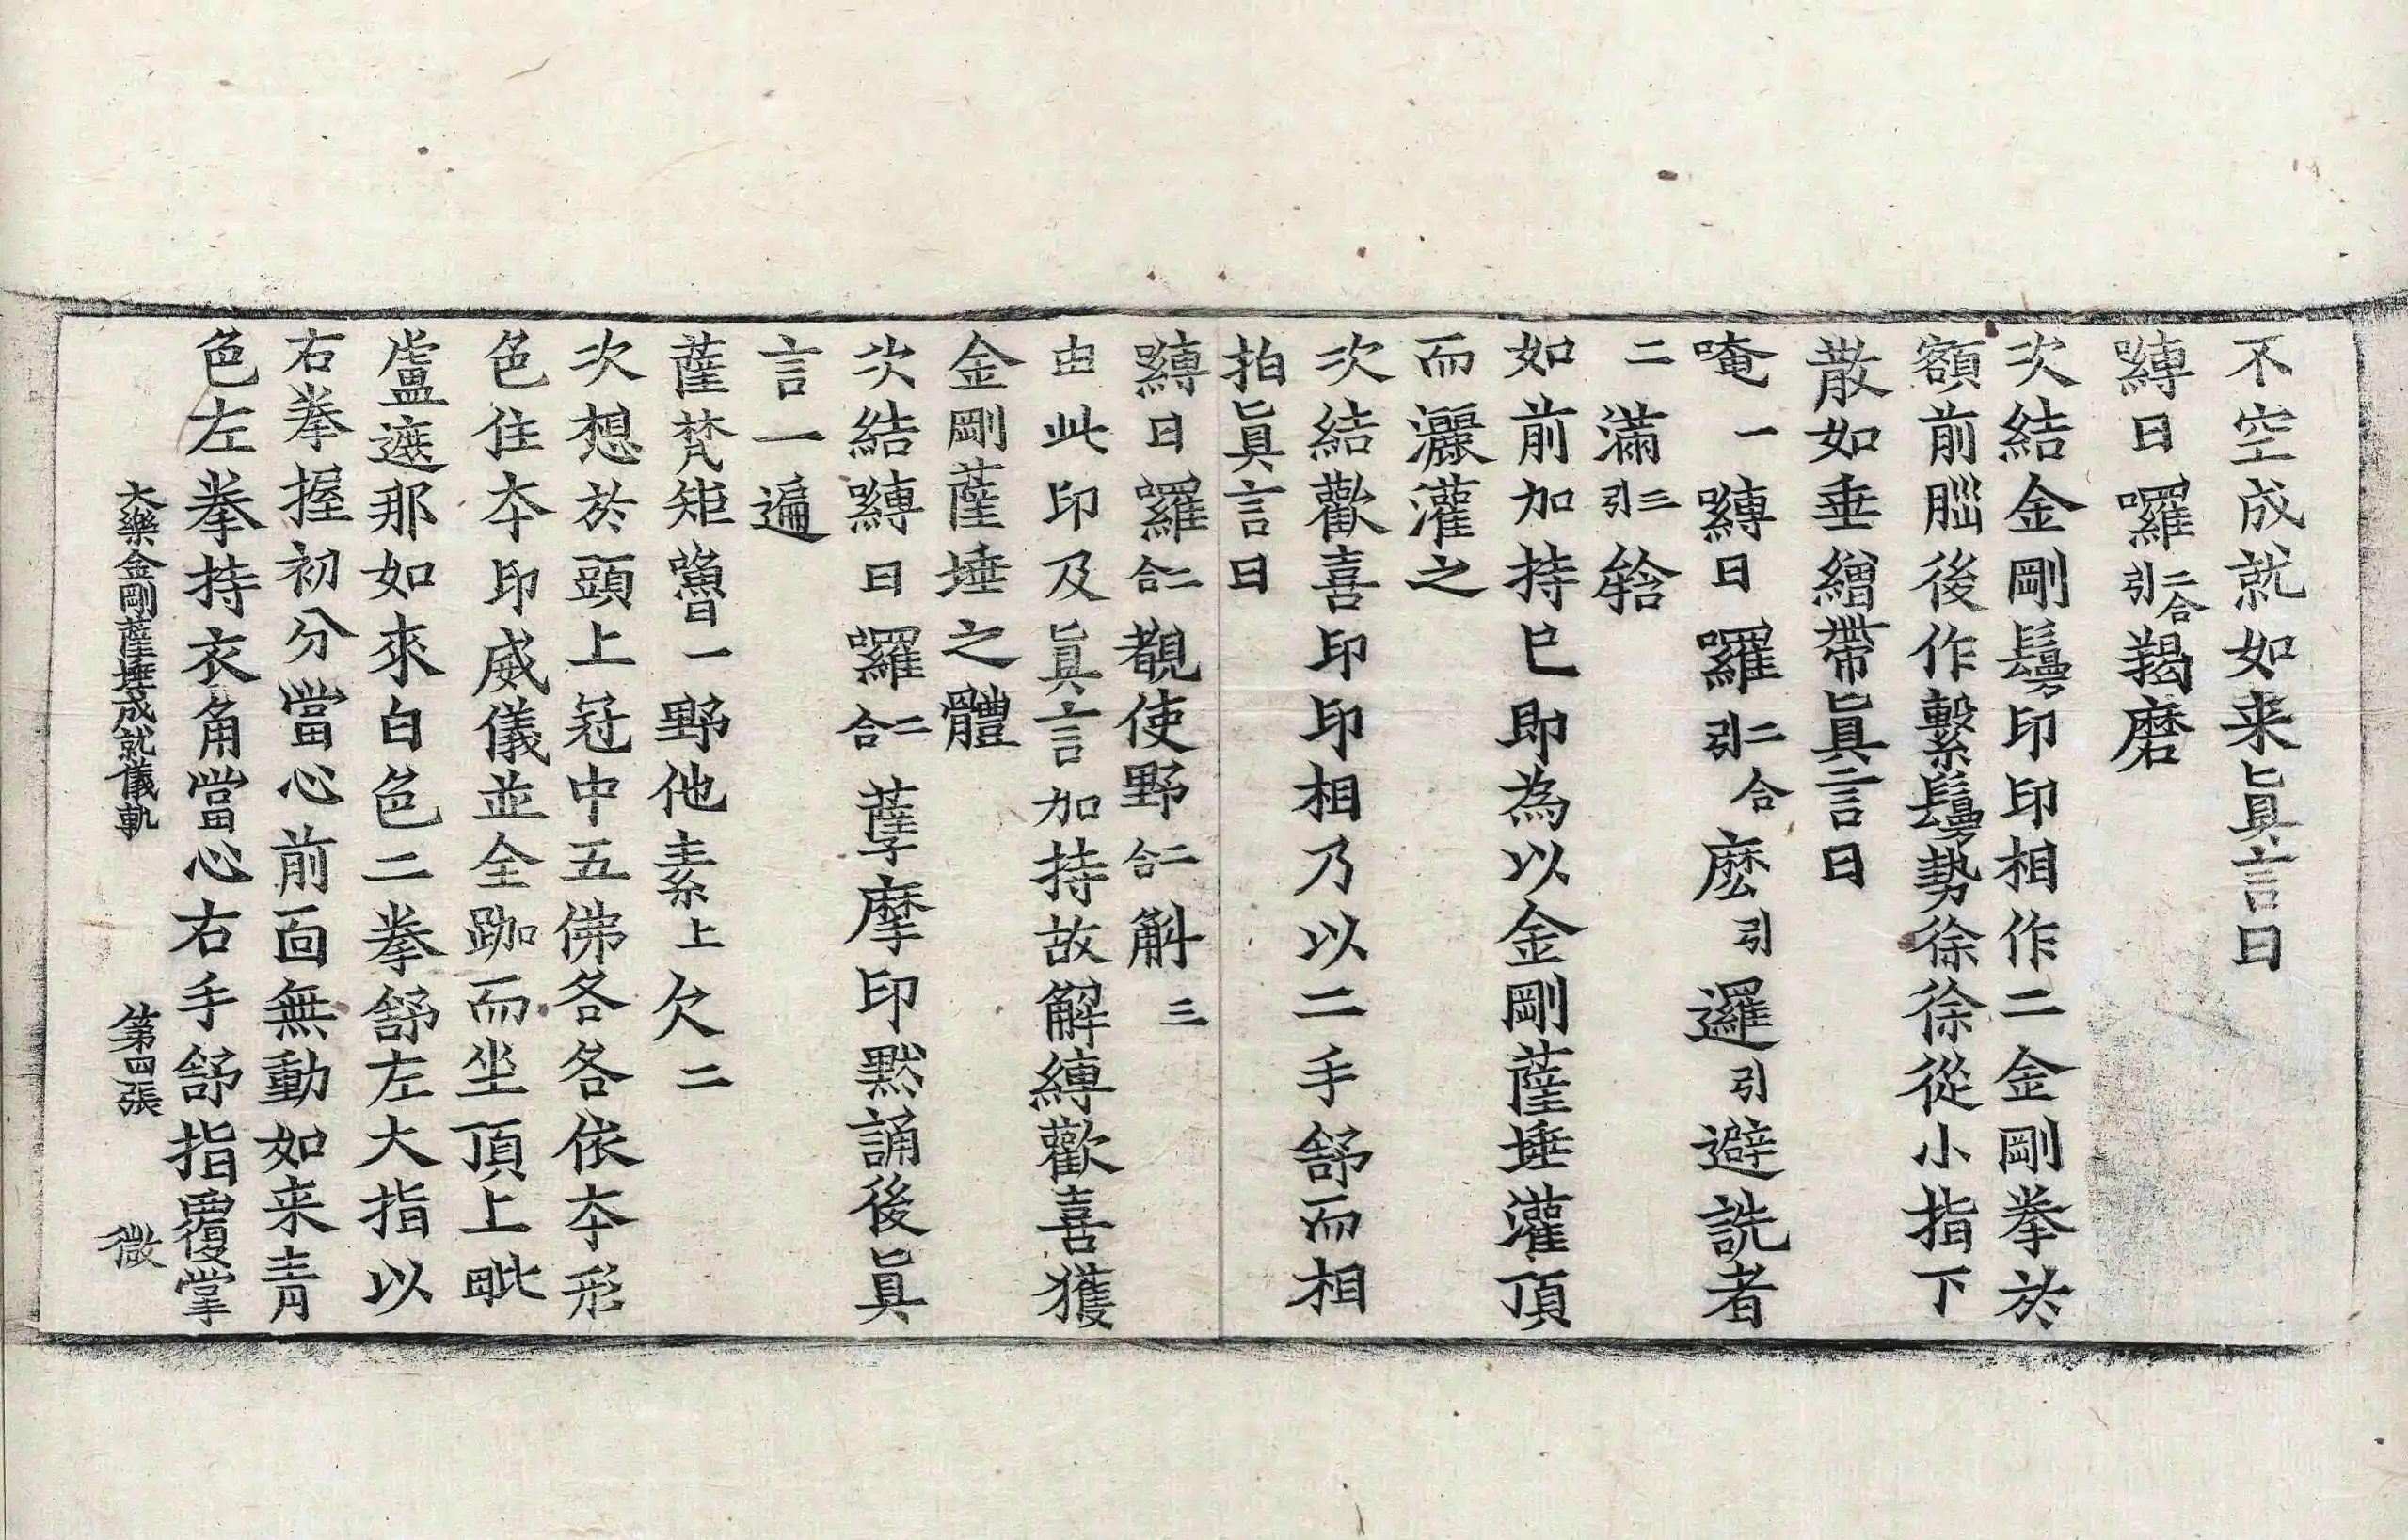 不空成就如来眞言曰
嚩日囉二合引羯磨
次結金剛鬘印印相作二金剛拳於
額前腦後作繫鬘勢徐徐從小指下
散如垂繒帶眞言曰
唵一嚩日囉二合引麼引邏引避詵者
二滿引三輅
如前加持已即為以金剛薩埵灌頂
而灑灌之
次結歡喜印印相乃以二手舒而相
拍眞言曰
嚩日囉二合覩使野二合斛三
由此印及眞言加持故解縛歡喜獲
金剛薩埵之體
次結嚩日囉二合薩摩印默誦後眞
言一遍
薩梵矩嚕一野他素上欠二
次想於頭上冠中五佛各各依本形
色住本印威儀並全跏而坐頂上毗
盧遮那如來白色二拳舒左大指以
右拳握初分當心前面無動如来青
色左拳持衣角當心右手舒指覆掌
大樂金剛薩埵成就儀軌　第四張　微